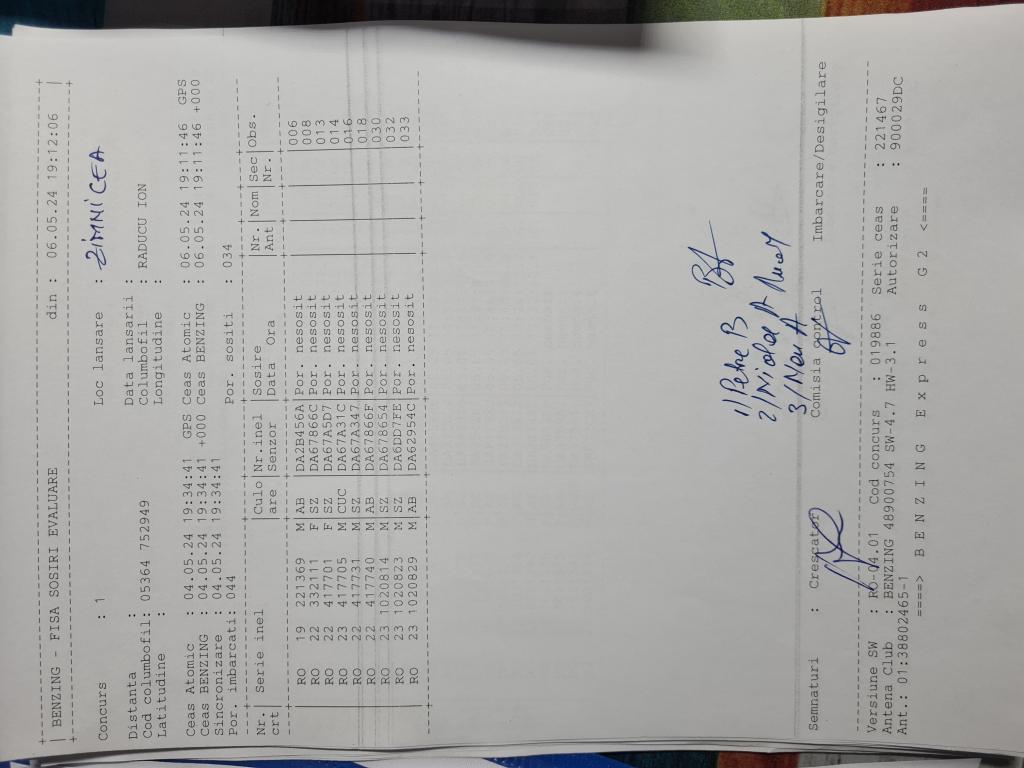 BENZING - FISA SOSIRI EVALUARE din : 06.05.24 19:12:06
Concurs : 1 Loc lansare : ZIMNICEA
Distanta : Data lansarii :
Cod columbofil: 05364 752949 Columbofil : RADUCU ION
Latitudine : Longitudine :
Ceas Atomic : 04.05.24 19:34:41 GPS Ceas Atomic : 06.05.24 19:11:46 GPS
Ceas BENZING : 04.05.24 19:34:41 +000 Ceas BENZING : 06.05.24 19:11:46 +000
Sincronizare : 04.05.24 19:34:41
Por. imbarcati: 044 Por. sositi : 034
Nr.| Serie inel |Culo|Nr.inel |Sosire |Nr. |Nom|Sec|Obs.
crt| |are |Senzor |Data Ora |Ant | |Nr.|
RO 19 221369 M AB |DA2B456A|Por. nesosit 006
RO 22 332111 F SZ |DA67866C|Por. nesosit 008
RO 22 417701 F SZ |DA67A5D7|Por. nesosit 013
RO 23 417705 M CUC |DA67A31C|Por. nesosit 014
RO 22 417731 M SZ |DA67A347|Por. nesosit 016
RO 22 417740 M AB |DA67866F|Por. nesosit 018
RO 23 1020814 M SZ |DA678654|Por. nesosit 030
RO 23 1020823 M SZ |DA6DD7FE|Por. nesosit 032
RO 23 1020829 M AB |DA62954C|Por. nesosit 033
1) Petre B
2/ Nicolae A
3/
Semnaturi : Crescator Comisia control Imbarcare/Desigilare
Versiune SW : RO-04.01 Cod concurs : 019886 Serie ceas : 221467
Antena Club : BENZING 48900754 SW-4.7 HW-3.1 Autorizare : 900029DC
Ant.: 01:38802465-1
====> B E N Z I N G E x p r e s s G 2 <====